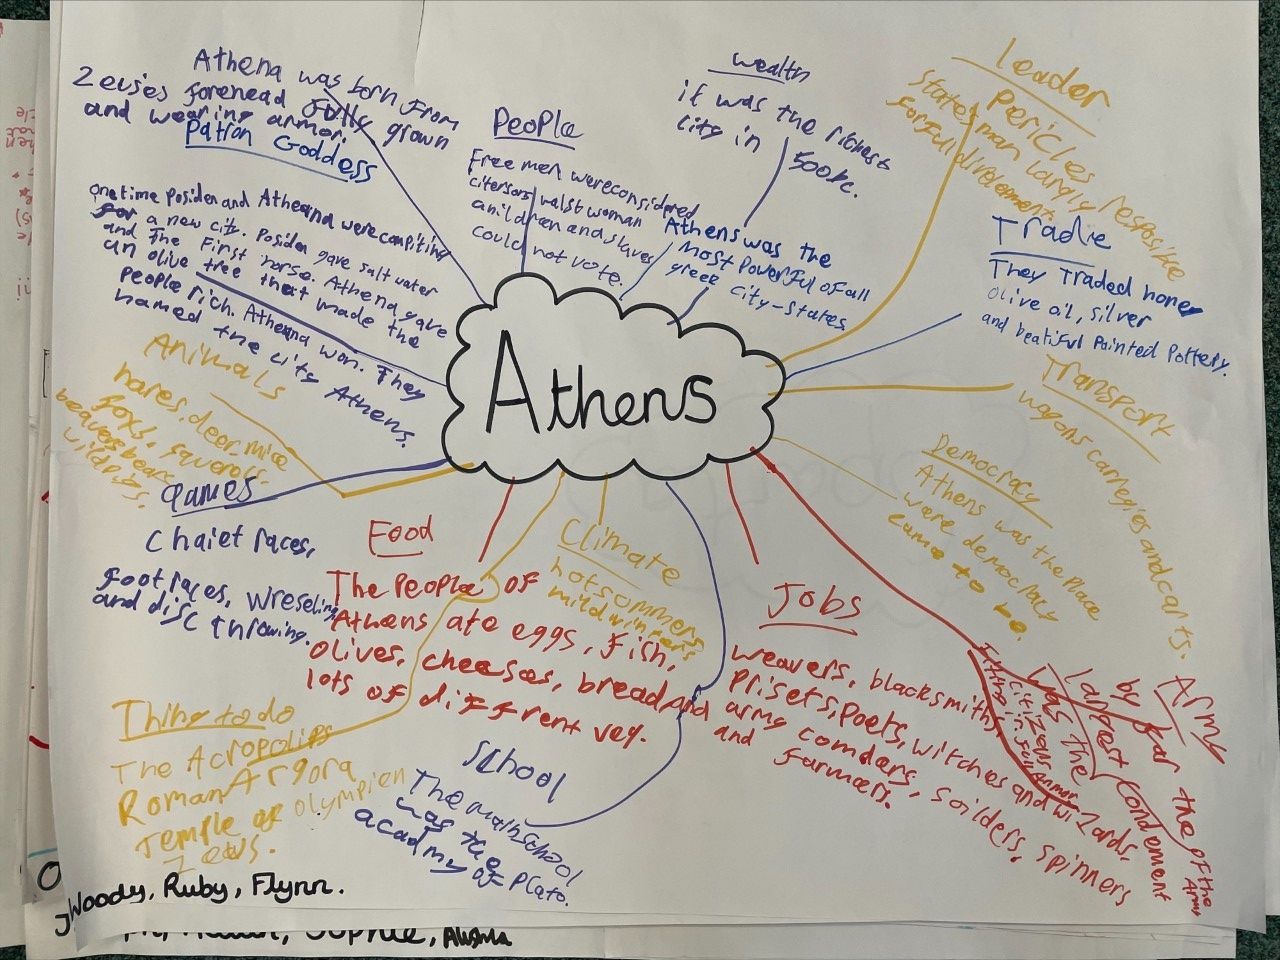 Athens
Athena was born from
Zeuses forenead fully grown
and wearing armor.
Patron Goddess
People
Free men wereconsidered
citersons walst woman
anildren and slaves
could not vote.
Wealth
it was the richest
city in
500bc.
Athens was the
most powerful of all
greec city-states
Leader
Pericles
states man largly resposible
for full
Tradie
They Traded honer
olive oil, silver
and beatiful Painted Pottery.
Transport
wagons carregies and carts.
Democracy
Athens was the place
were democracy
came to be.
onetime Posiden and Atheana were compiting
for a new city. Posiden gave salt water
and The First horse. Athena gave
an olive tree that made the
people rich. Atheana won. They
named the city Athens.
Animals
hares, deer, mice
foxs, squerols.
beavers bears
wildpigs.
games
Chaiet races,
foot races, wreseling
and disc throwing.
Food
The People of
Athens ate eggs, fish,
olives, cheeses, bread and
lots of different veg.
Climate
hot sommers
mild winners
Jobs
weavers, blacksmiths,
Prisets, Poets, witches and wizards.
army comders, soilders, spinners
and farmers.
Army
by far the
largest
was the
citizans
in full armor
of the
Army
Thing to do
The Acropolips
Roman Argora
Temple of olympien
Zeus.
School
The main school
was the
acadmy of Plato.
Woody, Ruby, Flynn.
Sophie, Alisha